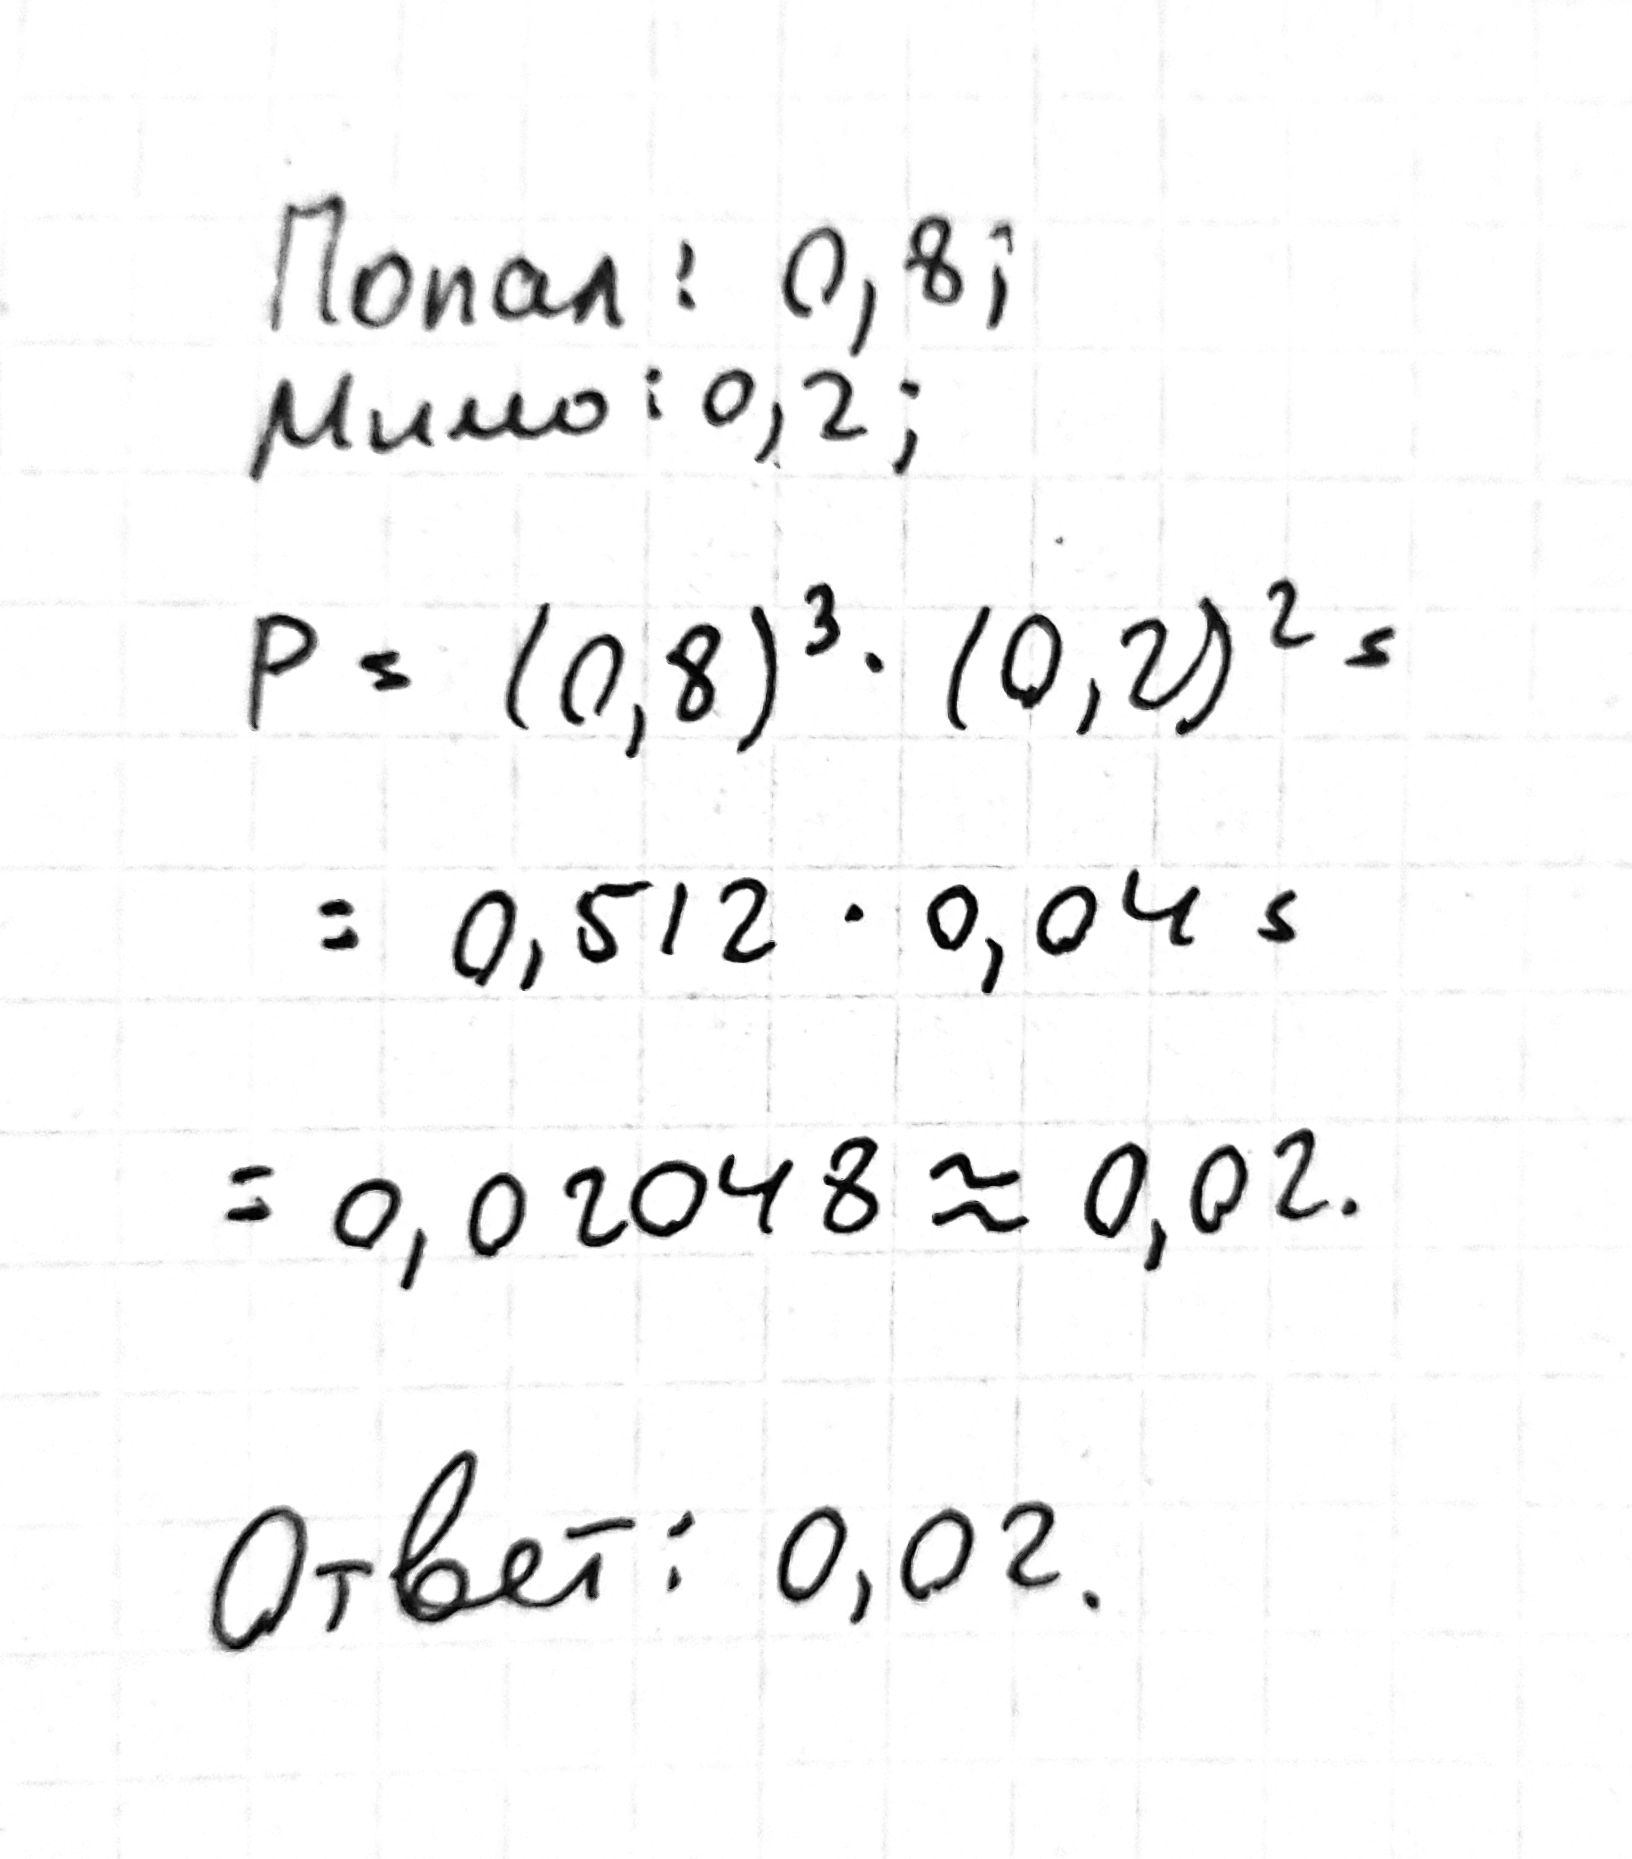 Попал: 0,8;
Мимо: 0,2;
P = (0,8)³ · (0,2)² =
= 0,512 · 0,04 =
= 0,02048 ≈ 0,02.
Ответ: 0,02.